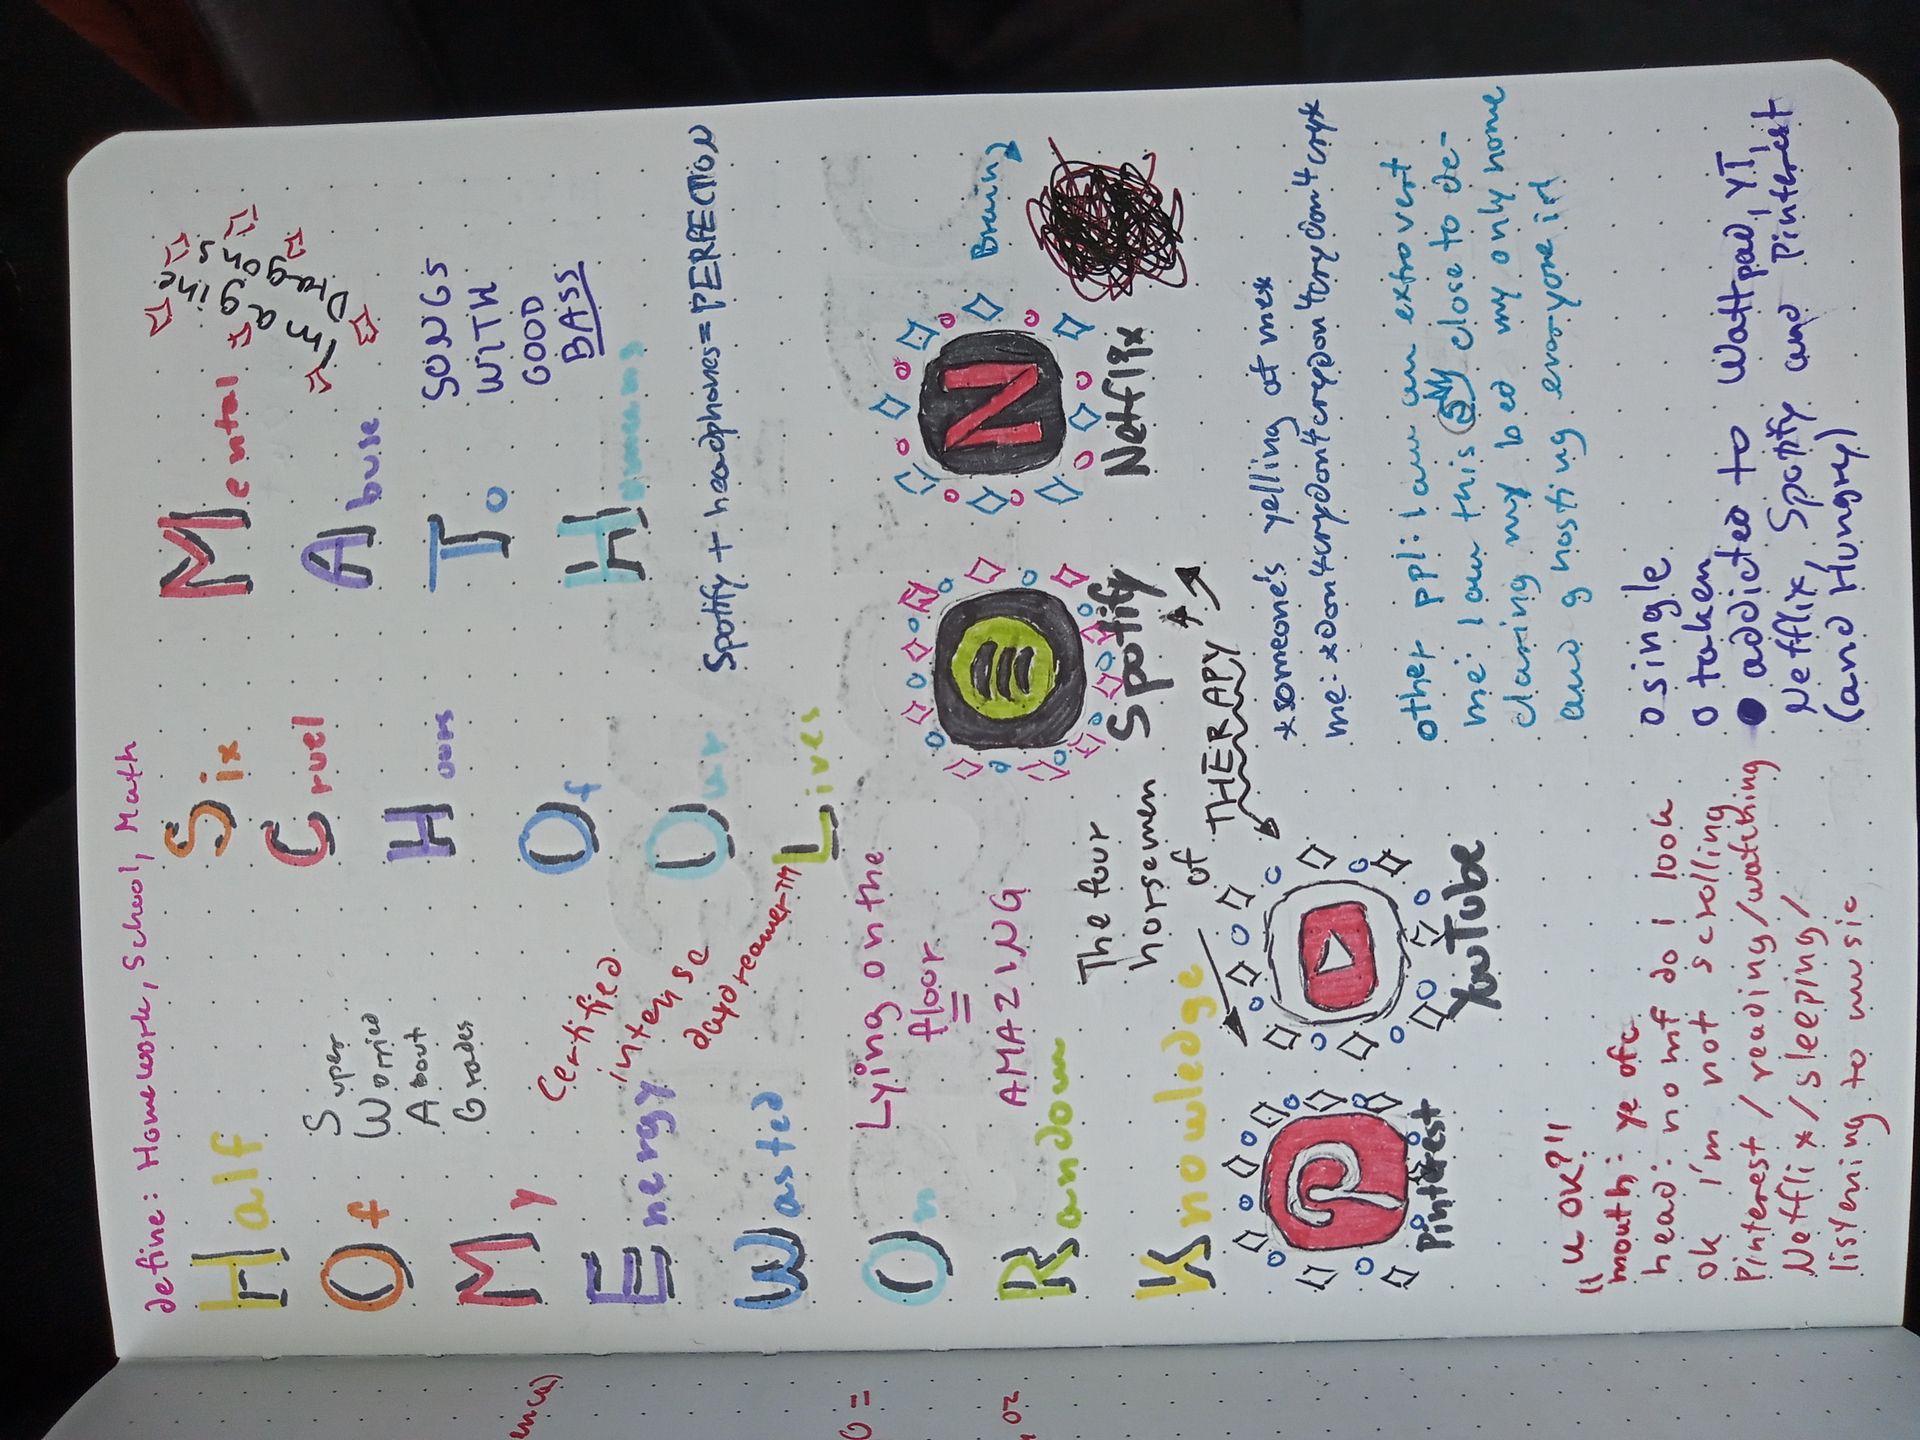 define: Homework, School, Math
Half
Of
My
Energy
Wasted
On
Random
Knowledge
Six
Cruel
Hours
Of
Our
Lives
Mental
Abuse
To
Humans
Super
Worried
About
Grades
Certified
intense
daydreamer™
Imagine
Dragons
SONGS
WITH
GOOD
BASS
Spotify + headphones = PERFECTION
Lying on the
floor
=
AMAZING
The four
horsemen
of
THERAPY
Pinterest
YouTube
Spotify
Netflix
N
Brain
"u OK?!"
mouth: ye ofc
head: no mf do I look
ok I'm not scrolling
Pinterest / reading / watching
Netflix / sleeping /
listening to music
*someone's yelling at me*
me: *don't cry don't cry don't cry don't cry don't cry*
other ppl: I am an extrovert
me: I am this close to de-
claring my bed my only home
and ghosting everyone irl
o single
o taken
● addicted to Wattpad, YT,
Netflix, Spotify and Pinterest
(and Hungry)